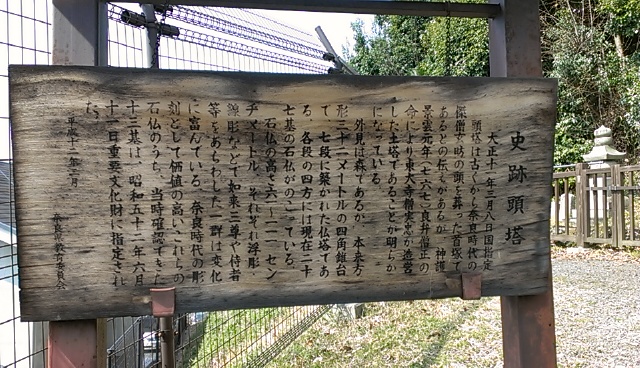 史跡頭塔
大正十一年三月八日国指定
頭塔は古くから奈良時代の
僧玄昉の頭を葬った首塚で
あるとの伝えがあるが、神護
景雲元年(七六七)良弁僧正の
命により東大寺僧実忠が造営
した土塔であることが明らか
になっている。
外見は森であるが、本来方
形三十二メートルの四角錐台
で、七段に築かれた仏塔であ
る。各段の四方には現在二十
七基の石仏がのこっている。
石仏の高さ六〇〜一一〇セン
チメートル、それぞれ浮彫・
線彫などで如来三尊や侍者
等をあらわした一群は変化
に富んでいる。奈良時代の彫
刻として価値の高いこれらの
石仏のうち、当時確認できた
十三基は、昭和五十二年六月
十一日重要文化財に指定され
た。
平成十二年三月
奈良県教育委員会